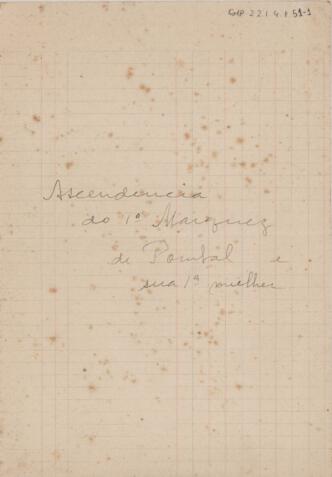 22141 51-1
Ascendencia
do 1º Marquez
de Pombal e
sua 1ª mulher